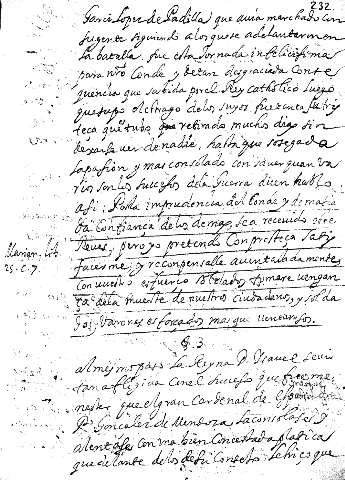 232
Garci Lopez de Padilla que auia marchado con
su gente siguiendo a los que se adelantaron en
la batalla, fue esta Jornada infelicissima
para nro Conde, y detan desgraciada Conse
quencia que sabida por el Rey Catholico luego
que supo el estrago de los suyos fue tanta su tris
teca que tubo retirado muchos dias sin
dexarse ver de nadie, hasta que sosegada
la pasion y mas consolado con saver quan va
rios son los sucesos de la Guerra dicen hablo
asi. Por la imprudencia del Conde y demasia
da confianca de los demas, se a recevido este
Reves, pero yo pretendo con presteça satis
facerme, y recompensalle aventaxadamente
Con vuestro esfuerço soldados tomare vengan
ça de la muerte de nuestros ciudadanos, y solda
dos Varones esforzados mas que venturosos.
Marian. lib.
25. c. 7.
§. 3
al mismo paso la Reyna D. Ysauel
tan afligida con el suceso que fue me
nester que el gran Cardenal de España
D. Gonçalez de Mendoza la consolase y
alentase con una bien concertada platica
que delante de los de su Consejo le hiço que